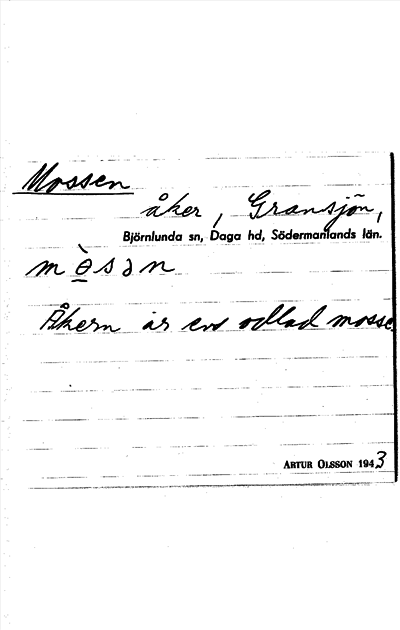 Mossen
åker, Gransjön,
Björnlunda sn, Daga hd, Södermanlands län.
mɵ̀sən
Åkern är en odlad mosse
ARTUR OLSSON 1943